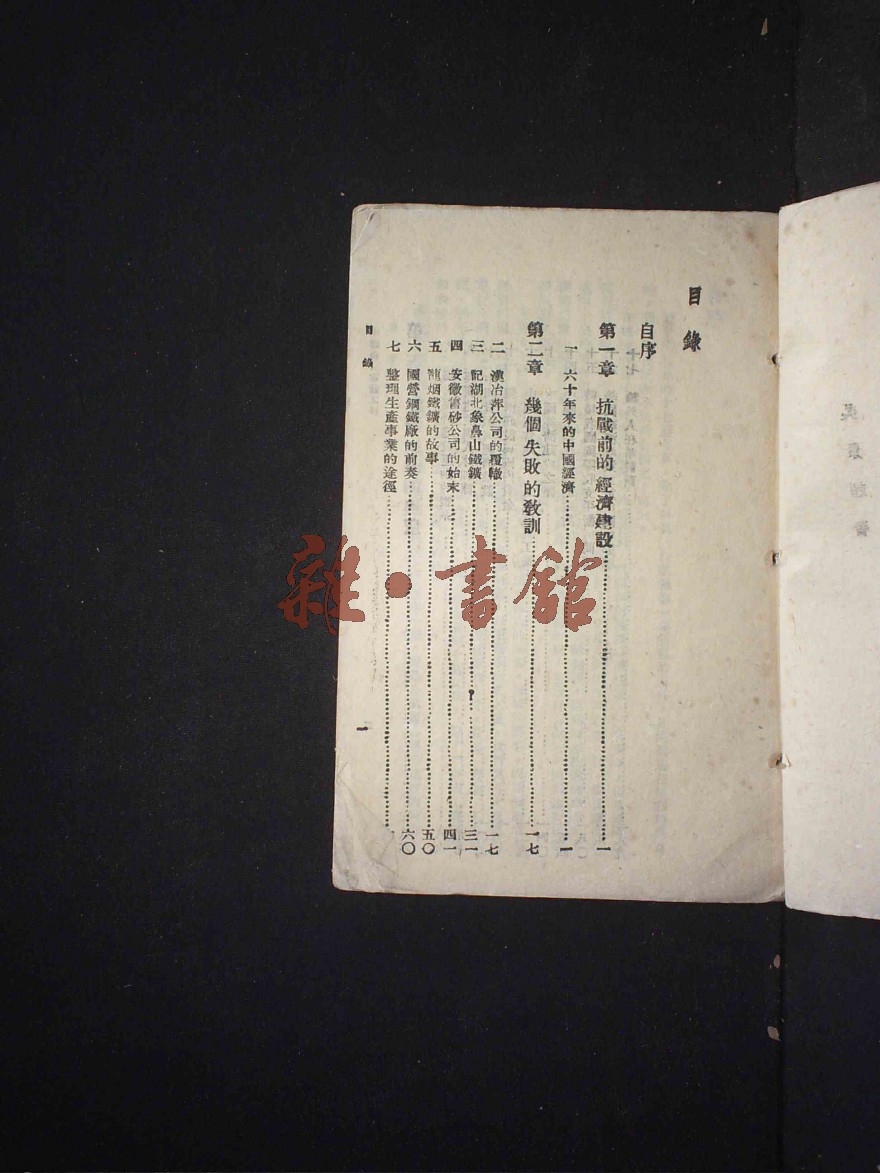 目錄
自序
第一章 抗戰前的經濟建設……一
一 六十年來的中國經濟……一
第二章 幾個失敗的敎訓……一七
二 漢冶萍公司的覆轍……一七
三 記湖北象鼻山鐵鑛……三一
四 安徽售砂公司的始末……四一
五 烟鐵鑛的故事……五〇
六 國營鋼鐵廠的前奏……六〇
七 整理生產事業的途徑……
目錄
一
雜·書館